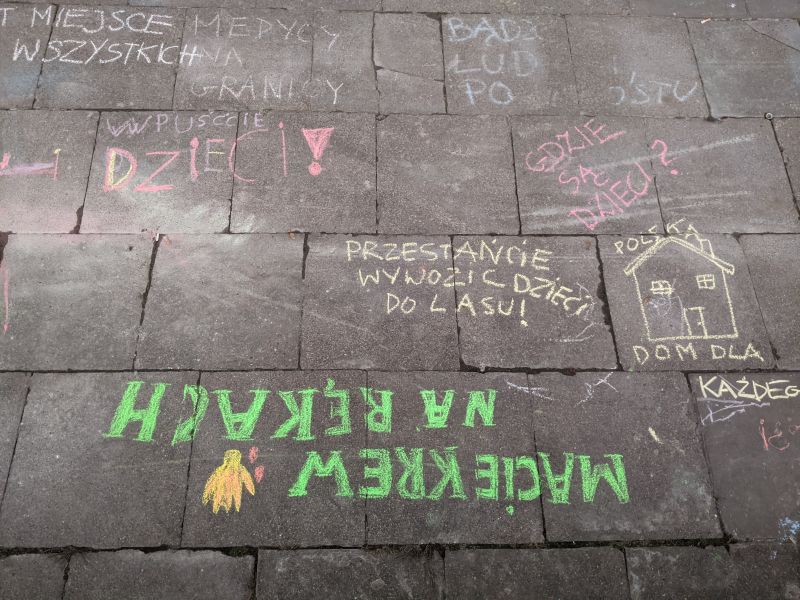 T MIEJSCE
WSZYSTKICH
MEDYCY
NA
GRANICY
BĄDŹ
LUD
PO
STU
WPUŚĆCIE
DZIECI!
GDZIE
SĄ
DZIECI?
PRZESTAŃCIE
WYWOZIC DZIECI
DO LASU!
POLSKA
DOM DLA
KAŻDEG
MACIE KREW
NA RĘKACH